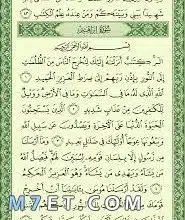 شَهِيدًا بَيْنِي وَبَيْنَكُمْ وَمَنْ عِندَهُ عِلْمُ الْكِتَٰبِ ٤٣
سُورَةُ إِبْرَاهِيمَ
بِسْمِ اللَّهِ الرَّحْمَٰنِ الرَّحِيمِ
الٓر كِتَٰبٌ أَنزَلْنَٰهُ إِلَيْكَ لِتُخْرِجَ النَّاسَ مِنَ الظُّلُمَٰتِ
إِلَى النُّورِ بِإِذْنِ رَبِّهِمْ إِلَىٰ صِرَٰطِ الْعَزِيزِ الْحَمِيدِ ١
اللَّهِ الَّذِي لَهُ مَا فِي السَّمَٰوَٰتِ وَمَا فِي الْأَرْضِ وَوَيْلٌ
لِّلْكَٰفِرِينَ مِنْ عَذَابٍ شَدِيدٍ ٢ الَّذِينَ يَسْتَحِبُّونَ
الْحَيَوٰةَ الدُّنْيَا عَلَى الْآخِرَةِ وَيَصُدُّونَ عَن سَبِيلِ اللَّهِ
وَيَبْغُونَهَا عِوَجًا أُولَٰئِكَ فِي ضَلَٰلٍ بَعِيدٍ ٣ وَمَا أَرْسَلْنَا
مِن رَّسُولٍ إِلَّا بِلِسَانِ قَوْمِهِ لِيُبَيِّنَ لَهُمْ فَيُضِلُّ اللَّهُ
مَن يَشَاءُ وَيَهْدِي مَن يَشَاءُ وَهُوَ الْعَزِيزُ الْحَكِيمُ ٤
وَلَقَدْ أَرْسَلْنَا مُوسَىٰ بِـَٔايَٰتِنَا أَنْ أَخْرِجْ قَوْمَكَ